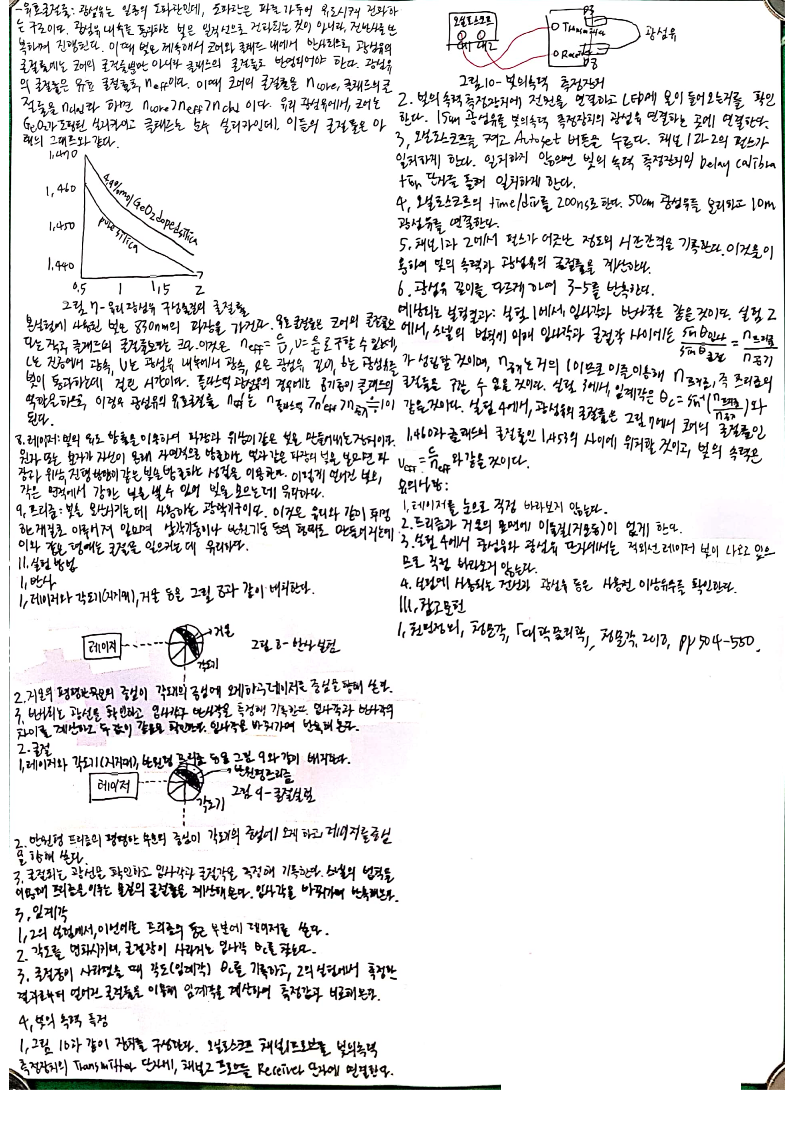 -유효굴절률: 광섬유는 일종의 도파관인데, 도파관은 파를 가두어 유도시켜 전파하
는 구조이다. 광섬유 내부를 통과하는 빛은 일직선으로 전파되는 것이 아니라, 전반사를 반
복하며 진행된다. 이때 빛은 계속해서 코어와 클래드 내에서 반사되므로, 광섬유의
굴절률에는 코어의 굴절률뿐만 아니라 클래드의 굴절률도 반영되어야 한다. 광섬유
의 굴절률은 유효 굴절률로, neff이다. 이때 코어의 굴절률은 ncore, 클래드의 굴
절률을 nclad라 하면 ncore>neff>nclad 이다. 유리 광섬유에서, 코어는
GeO2가 도핑된 실리카이고 클래드는 순수 실리카인데, 이들의 굴절률은 아
래의 그래프와 같다.
1.470
1.460
1.450
1.440
4.9%mol GeO2 doped silica
pure silica
0.5 1 1.5 2
그림 7-유리 광섬유 구성물질의 굴절률
본 실험에 사용된 빛은 830nm의 파장을 가진다. 유효굴절률은 코어의 굴절률보
다는 작고, 클래드의 굴절률보다는 크다. 이것은 neff=c/v, v=l/t로 구할 수 있는데,
c는 진공에서 광속, v는 광섬유 내부에서 광속, l은 광섬유 길이, t는 광섬유를
빛이 통과하는데 걸린 시간이다. 플라스틱 광섬유의 경우에는 공기층이 클래드의
역할을 하므로, 이런 광섬유의 유효굴절률 neff는 n플라스틱>neff>n공기≒1이
된다.
8. 레이저: 빛의 유도 방출을 이용하여 파장과 위상이 같은 빛을 만들어내는 장치이다.
원자 또는 분자가 자신이 원래 자연적으로 방출하는 빛과 같은 파장의 빛을 받으면 파
장과 위상, 진행 방향이 같은 빛을 방출하는 성질을 이용한다. 이렇게 얻어진 빛은,
작은 면적에서 강한 빛을 낼 수 있어 빛을 모으는데 유리하다.
9. 프리즘: 빛을 굴절시키는데 사용하는 광학기구이다. 이것은 유리와 같이 투명
한 재질로 이루어져 있으며 삼각기둥이나 반원기둥 등의 형태로 만들어지는데
이와 같은 형태는 굴절을 일으키는 데 유리하다.
II. 실험 방법
1. 반사
1. 레이저와 각도기(지지대), 거울 등을 그림 8과 같이 배치한다.
레이저
거울
각도기
그림 8-반사 실험
2. 거울의 평평한 부분의 중심이 각도기의 중심에 오게 하고 레이저를 중심을 향해 쏜다.
3. 반사되는 광선을 확인하고 입사각과 반사각을 측정해 기록한다. 입사각과 반사각의
차이를 계산하고 두 값이 같음을 확인한다. 입사각을 바꿔가며 반복해 본다.
2. 굴절
1. 레이저와 각도기(지지대), 반원형 프리즘 등을 그림 9와 같이 배치한다.
레이저
반원형프리즘
각도기
그림 9-굴절실험
2. 반원형 프리즘의 평평한 부분의 중심이 각도기의 중심에 오게 하고 레이저를 중심
을 향해 쏜다.
3. 굴절되는 광선을 확인하고 입사각과 굴절각을 측정해 기록한다. 스넬의 법칙을
이용해 프리즘을 이루는 물질의 굴절률을 계산해본다. 입사각을 바꿔가며 반복해본다.
3. 임계각
1. 2의 실험에서, 이번에는 프리즘의 둥근 부분에 레이저를 쏜다.
2. 각도를 변화시키며, 굴절광이 사라지는 입사각 θc를 찾는다.
3. 굴절광이 사라졌을 때 각도(임계각) θc를 기록하고, 2의 실험에서 측정한
결과로부터 얻어진 굴절률을 이용해 임계각을 계산하여 측정값과 비교해본다.
4. 빛의 속력 측정
1. 그림 10과 같이 장치를 구성한다. 오실로스코프 채널1프로브를 빛의속력
측정장치의 Transmitter 단자에, 채널2 프로브를 Receiver 단자에 연결한다.
오실로스코프
ch1 ch2
P3
Transmitter
Receiver
P8
광섬유
그림10-빛의속력 측정장치
2. 빛의 속력 측정장치에 전원을 연결하고 LED에 불이 들어오는지를 확인
한다. 15cm 광섬유를 빛의속력 측정장치의 광섬유 연결하는 곳에 연결한다.
3. 오실로스코프를 켜고 Autoset 버튼을 누른다. 채널 1과 2의 펄스가
일치하게 한다. 일치하지 않으면 빛의 속력 측정장치의 Delay calibra
tion 단자를 돌려 일치하게 한다.
4. 오실로스코프의 time/div를 200ns로 한다. 50cm 광섬유를 분리하고 10m
광섬유를 연결한다.
5. 채널1과 2에서 펄스가 어긋난 정도의 시간간격을 기록한다. 이것을 이
용하여 빛의 속력과 광섬유의 굴절률을 계산한다.
6. 광섬유 길이를 다르게 하여 3-5를 반복한다.
예상되는 실험결과: 실험 1에서, 입사각과 반사각은 같을 것이다. 실험 2
에서, 스넬의 법칙에 의해 입사각과 굴절각 사이에는 sinθ입사/sinθ굴절=n프리즘/n공기
가 성립할 것이며, n공기는 거의 1이므로 이를 이용해 n프리즘, 즉 프리즘의
굴절률을 구할 수 있을 것이다. 실험 3에서, 임계각은 θc=sin⁻¹(n프리즘/n공기)와
같을 것이다. 실험 4에서, 광섬유의 굴절률은 그림 7에서 코어의 굴절률인
1.460과 클래드의 굴절률인 1.453의 사이에 위치할 것이고, 빛의 속력은
veff=c/neff와 같을 것이다.
유의사항:
1. 레이저를 눈으로 직접 바라보지 않는다.
2. 프리즘과 거울의 표면에 이물질(거울등)이 없게 한다.
3. 실험 4에서 광섬유와 광섬유 단자에서는 적외선 레이저 빛이 나오고 있으
므로 직접 바라보지 않는다.
4. 실험에 사용되는 전선과 광섬유 등은 사용전 이상유무를 확인한다.
III. 참고문헌
1. 청문각, 「대학물리학」, 청문각, 2018, pp 504-550.